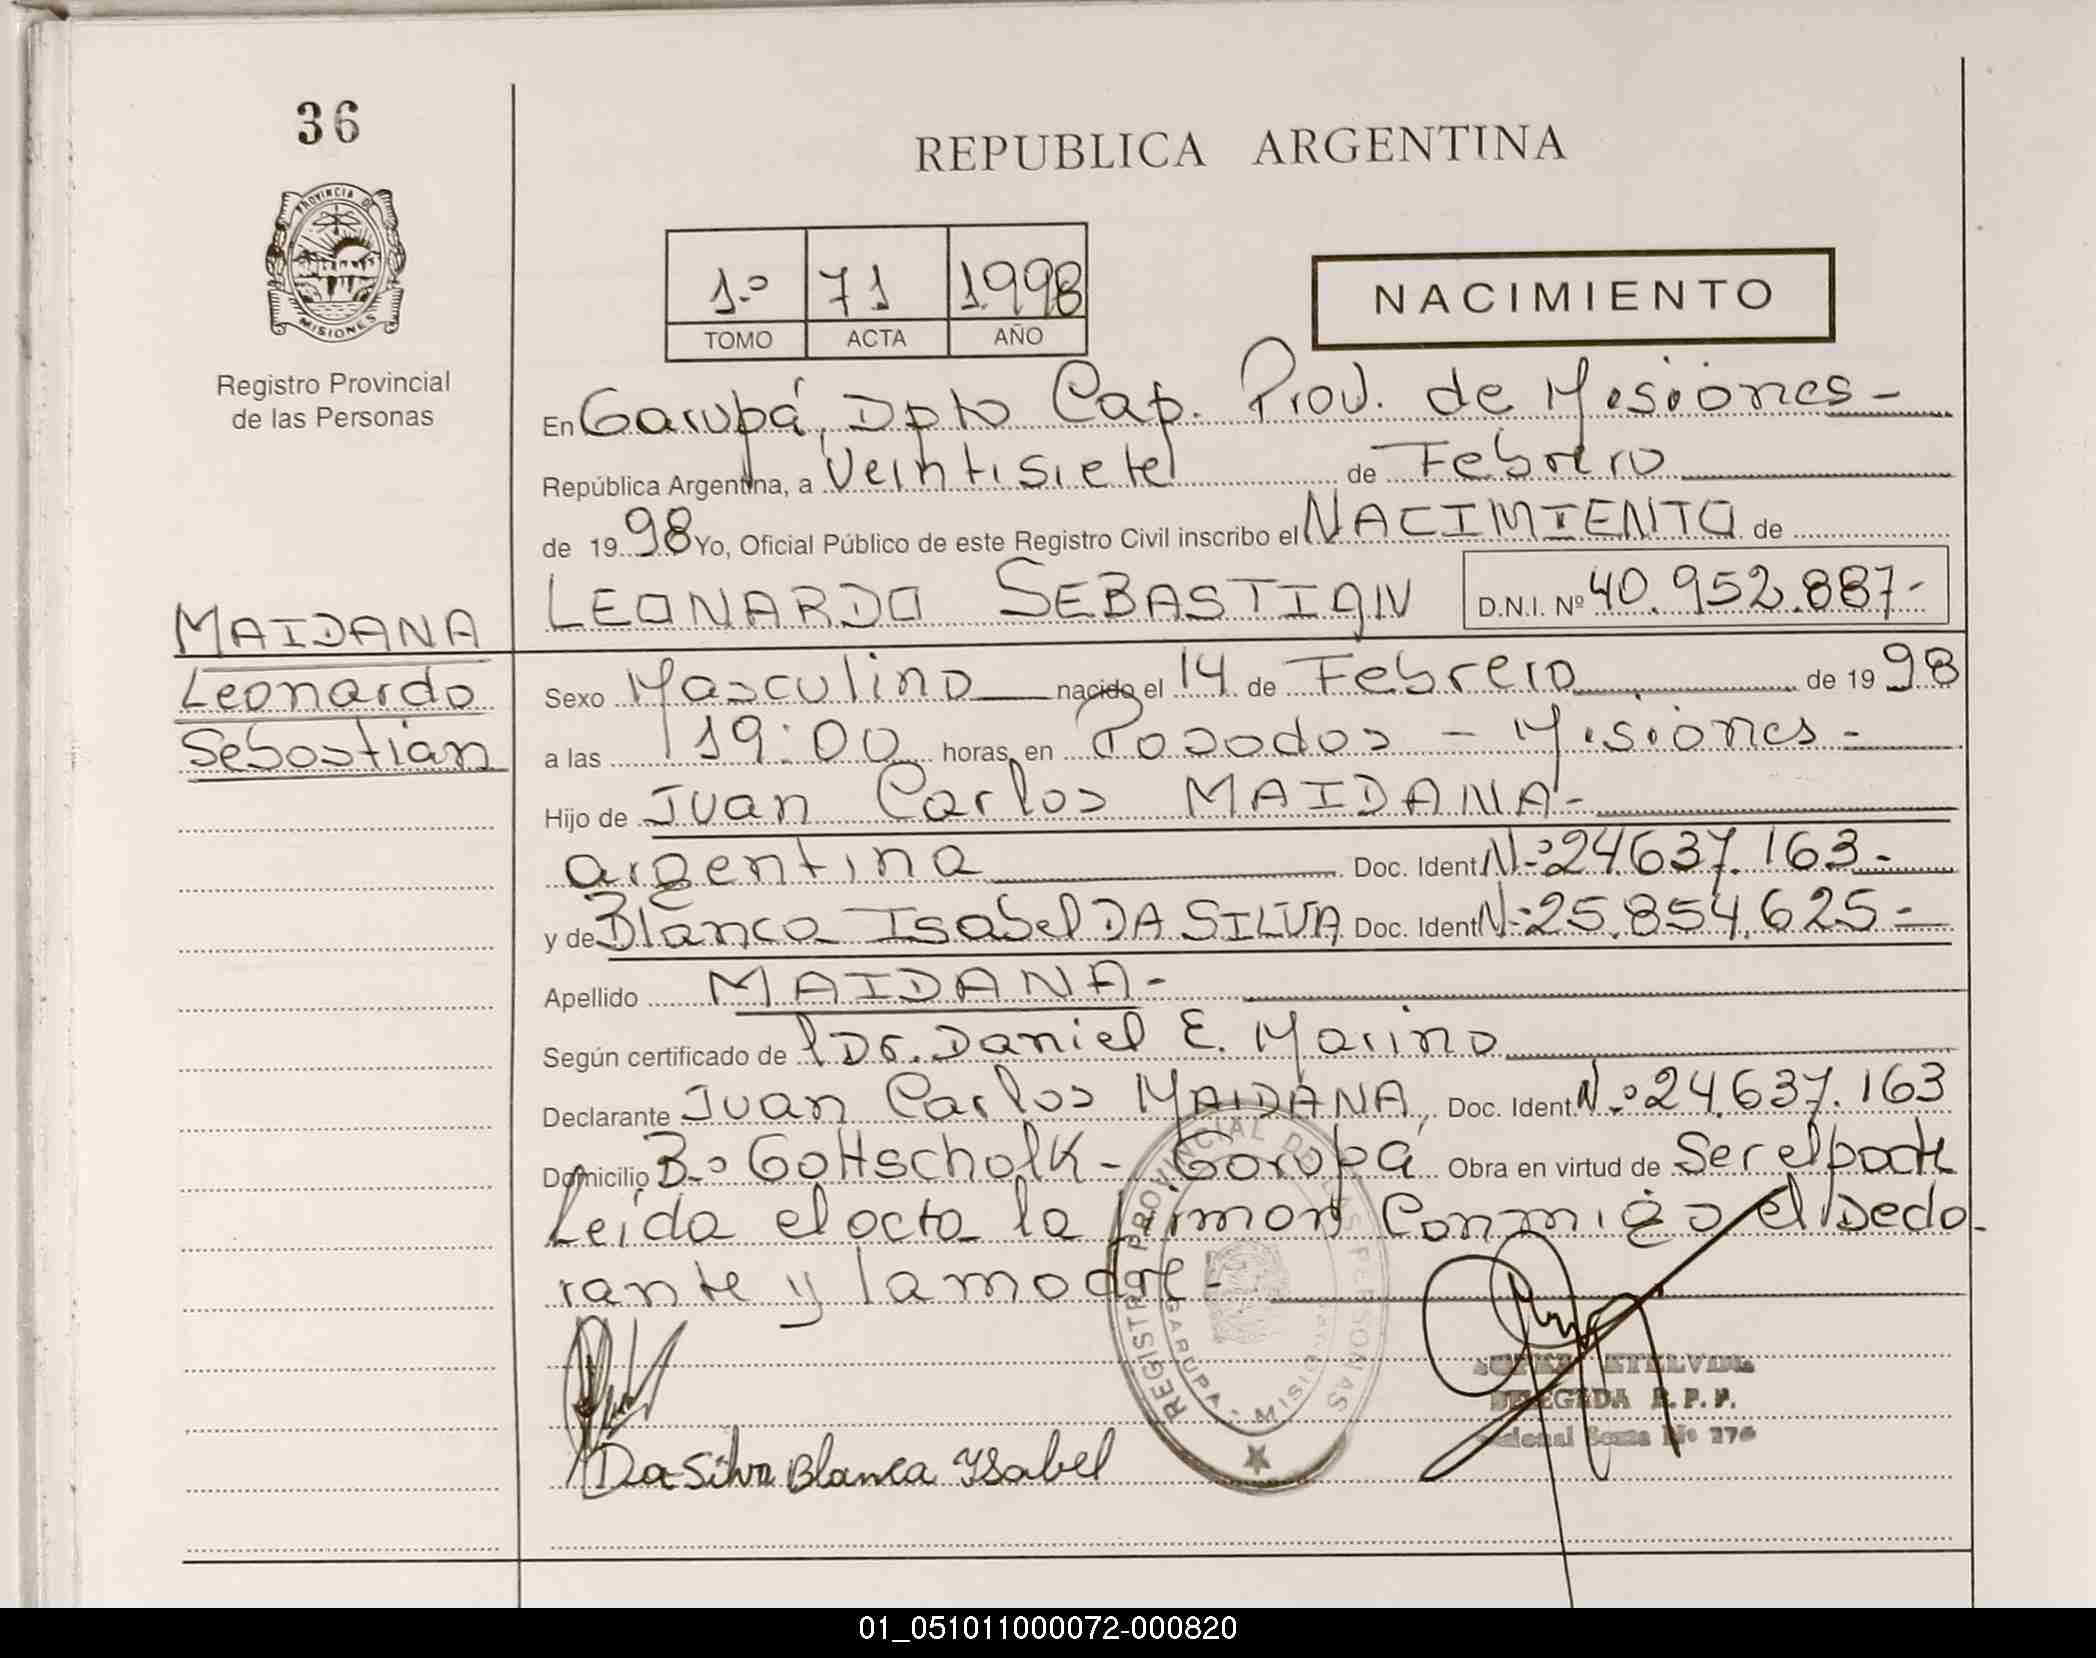 36
PROVINCIA DE
MISIONES
Registro Provincial
de las Personas
REPUBLICA ARGENTINA
1.º 71 1998
TOMO ACTA AÑO
NACIMIENTO
En Garupá, Dpto Cap. Prov. de Misiones -
República Argentina, a Veintisiete de Febrero
de 1998 Yo, Oficial Público de este Registro Civil inscribo el NACIMIENTO de
LEONARDO SEBASTIAN D.N.I. Nº 40.952.887-
MAIDANA
Leonardo
Sebastian
Sexo Masculino nacido el 14 de Febrero de 1998
a las 19:00 horas, en Posadas - Misiones -
Hijo de Juan Carlos MAIDANA -
argentina Doc. Ident Nº 24.637.163 -
y de Blanca Isabel DA SILVA Doc. Ident Nº 25.854.625 -
Apellido MAIDANA -
Según certificado de Dr. Daniel E. Marino
Declarante Juan Carlos MAIDANA, Doc. Ident Nº 24.637.163
Domicilio Bº Gottschalk - Garupá Obra en virtud de Ser el padre
Leida el acta la firman Conmigo el Decla-
rante y la madre -
REGISTRO PROVINCIAL DE LAS PERSONAS
GARUPA - MISIONES
ETELVINA
DELEGADA R. P. P.
Da Silva Blanca Ysabel
01_051011000072-000820